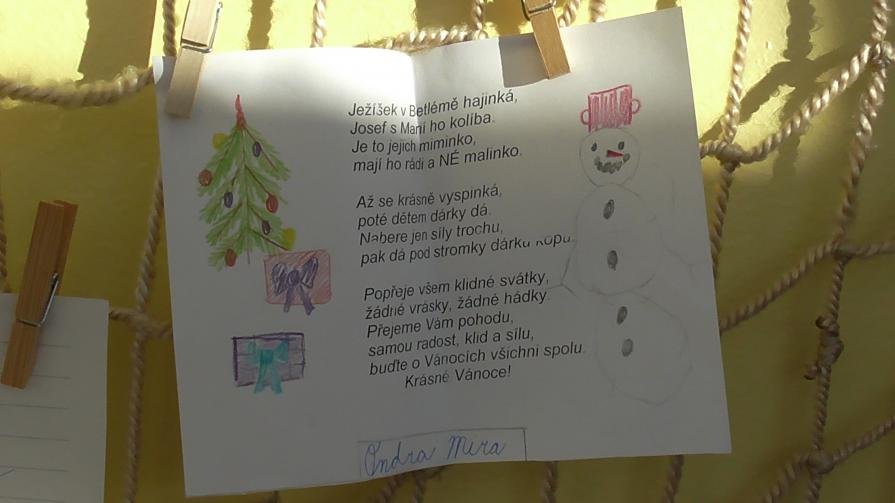 Ježíšek v Betlémě hajinká,
Josef s Marií ho kolíbá.
Je to jejich miminko,
mají ho rádi a NÉ malinko.
Až se krásně vyspinká,
poté dětem dárky dá.
Nabere jen síly trochu,
pak dá pod stromky dárků kopu.
Popřeje všem klidné svátky,
žádné vrásky, žádné hádky.
Přejeme Vám pohodu,
samou radost, klid a sílu,
buďte o Vánocích všichni spolu.
Krásné Vánoce!
Ondra Mira